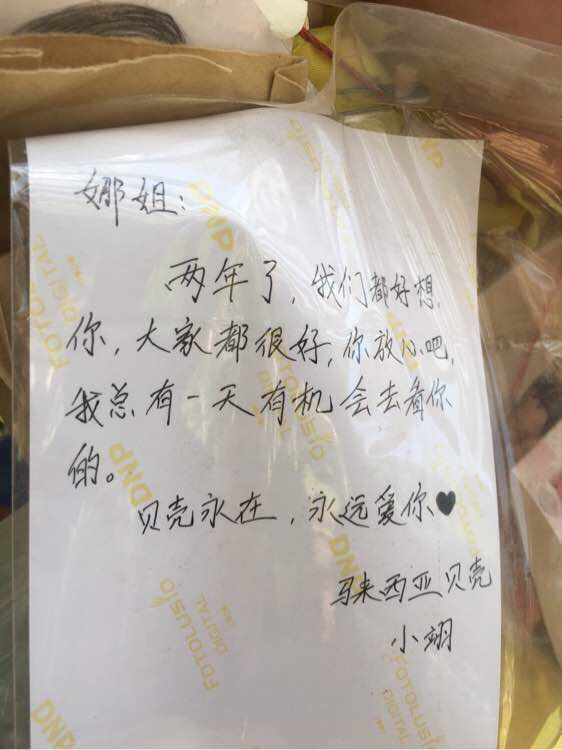 娜姐：
两年了，我们都好想
你，大家都很好，你放心吧，
我总有一天有机会去看你
的。
贝壳永在，永远爱你♥
马来西亚贝壳
小翊
DNP
FOTOLUSIO
DIGITAL
DNP
DNP
FOTOLUSIO
DIGITAL
DNP
FOTOLUSIO
DIGITAL
DNP